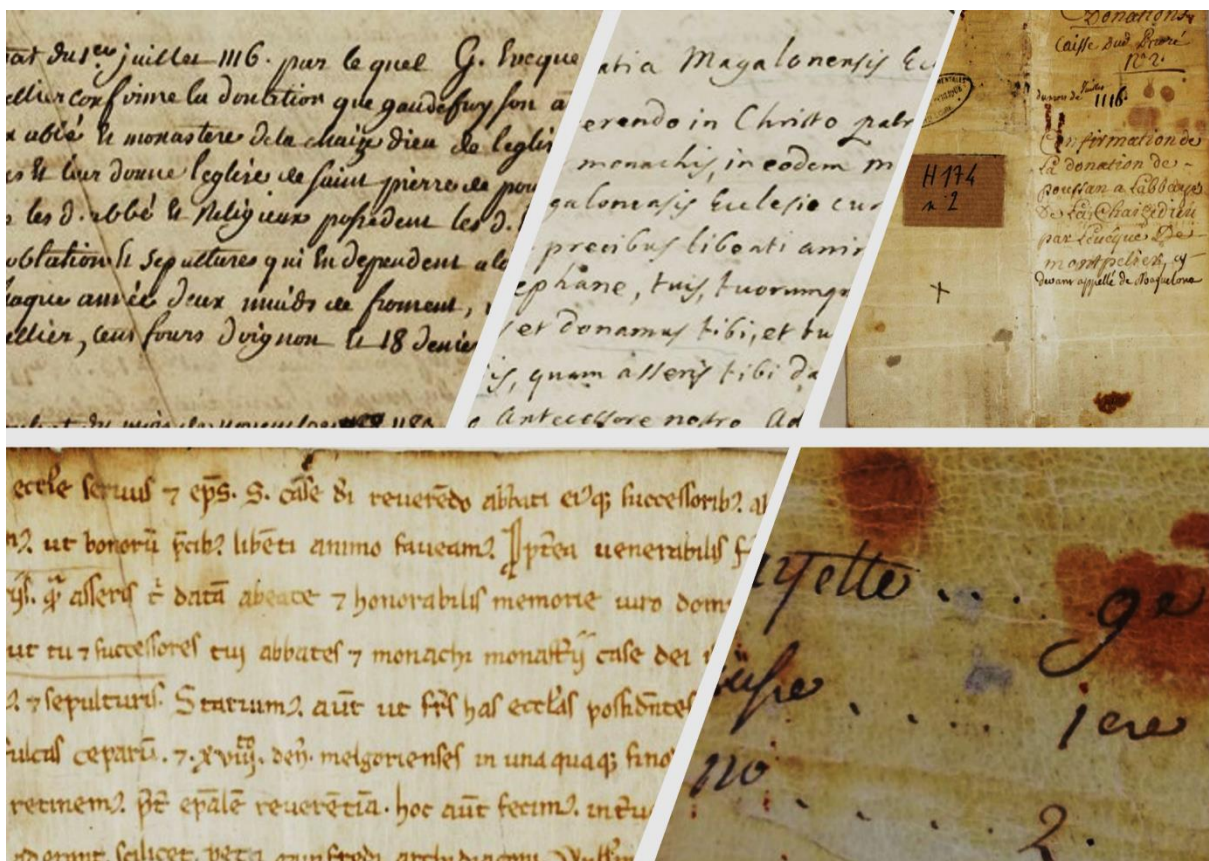 du 1er juillet 1116. par le quel G. Evêque
confirme la donation que gaudefroy son
abbé & monastere de la chaize dieu de l'eglis
& leur donne l'eglise de saint pierre de pou
les d. abbé & Religieux possedent les d.
oblation & sepultures qui en dependent
aque année deux muids de froment,
ellier, cent fours d'oignon & 18 denie
atia Magalonensis Ec
erendo in Christo patr
monachis, in eodem m
galonensis Ecclesie cur
precibus libenti anim
ephane, tuis, tuorumq
et donamus tibi, et tu
is, quam asseris tibi da
Antecessore nostro
Donations
Caisse dud Prieuré
No 2.
du mois de Juillet 1116.
Confirmation de
La donation de
poussan a L'abbaye
De La Chaizedieu
par L'eveque De
montpelier, cy
devant appellé de Maguelone
H 174
n 2
eccle seruus ⁊ eps. S. case di reuerendo abbati eiꝰq; successoribꝰ
ut bonorū p̄cibꝰ libēti animo faueamꝰ. Ip̄tea uenerabilis f
asseris t̄ datā abeate ⁊ honorabilis memorie uiro dom
ut tu ⁊ successores tui abbates ⁊ monachi monastīj case dei
⁊ sepulturis. Statuimꝰ. aūt ut frs has ecclas possidētes
fulcas ceparū. ⁊. xviij. den. melgorienses in unaquaq; sino
retinemꝰ. epale reuerētia. hoc aūt fecimꝰ.
scilicet
yette .... ge
.... iere
no ..... 2.